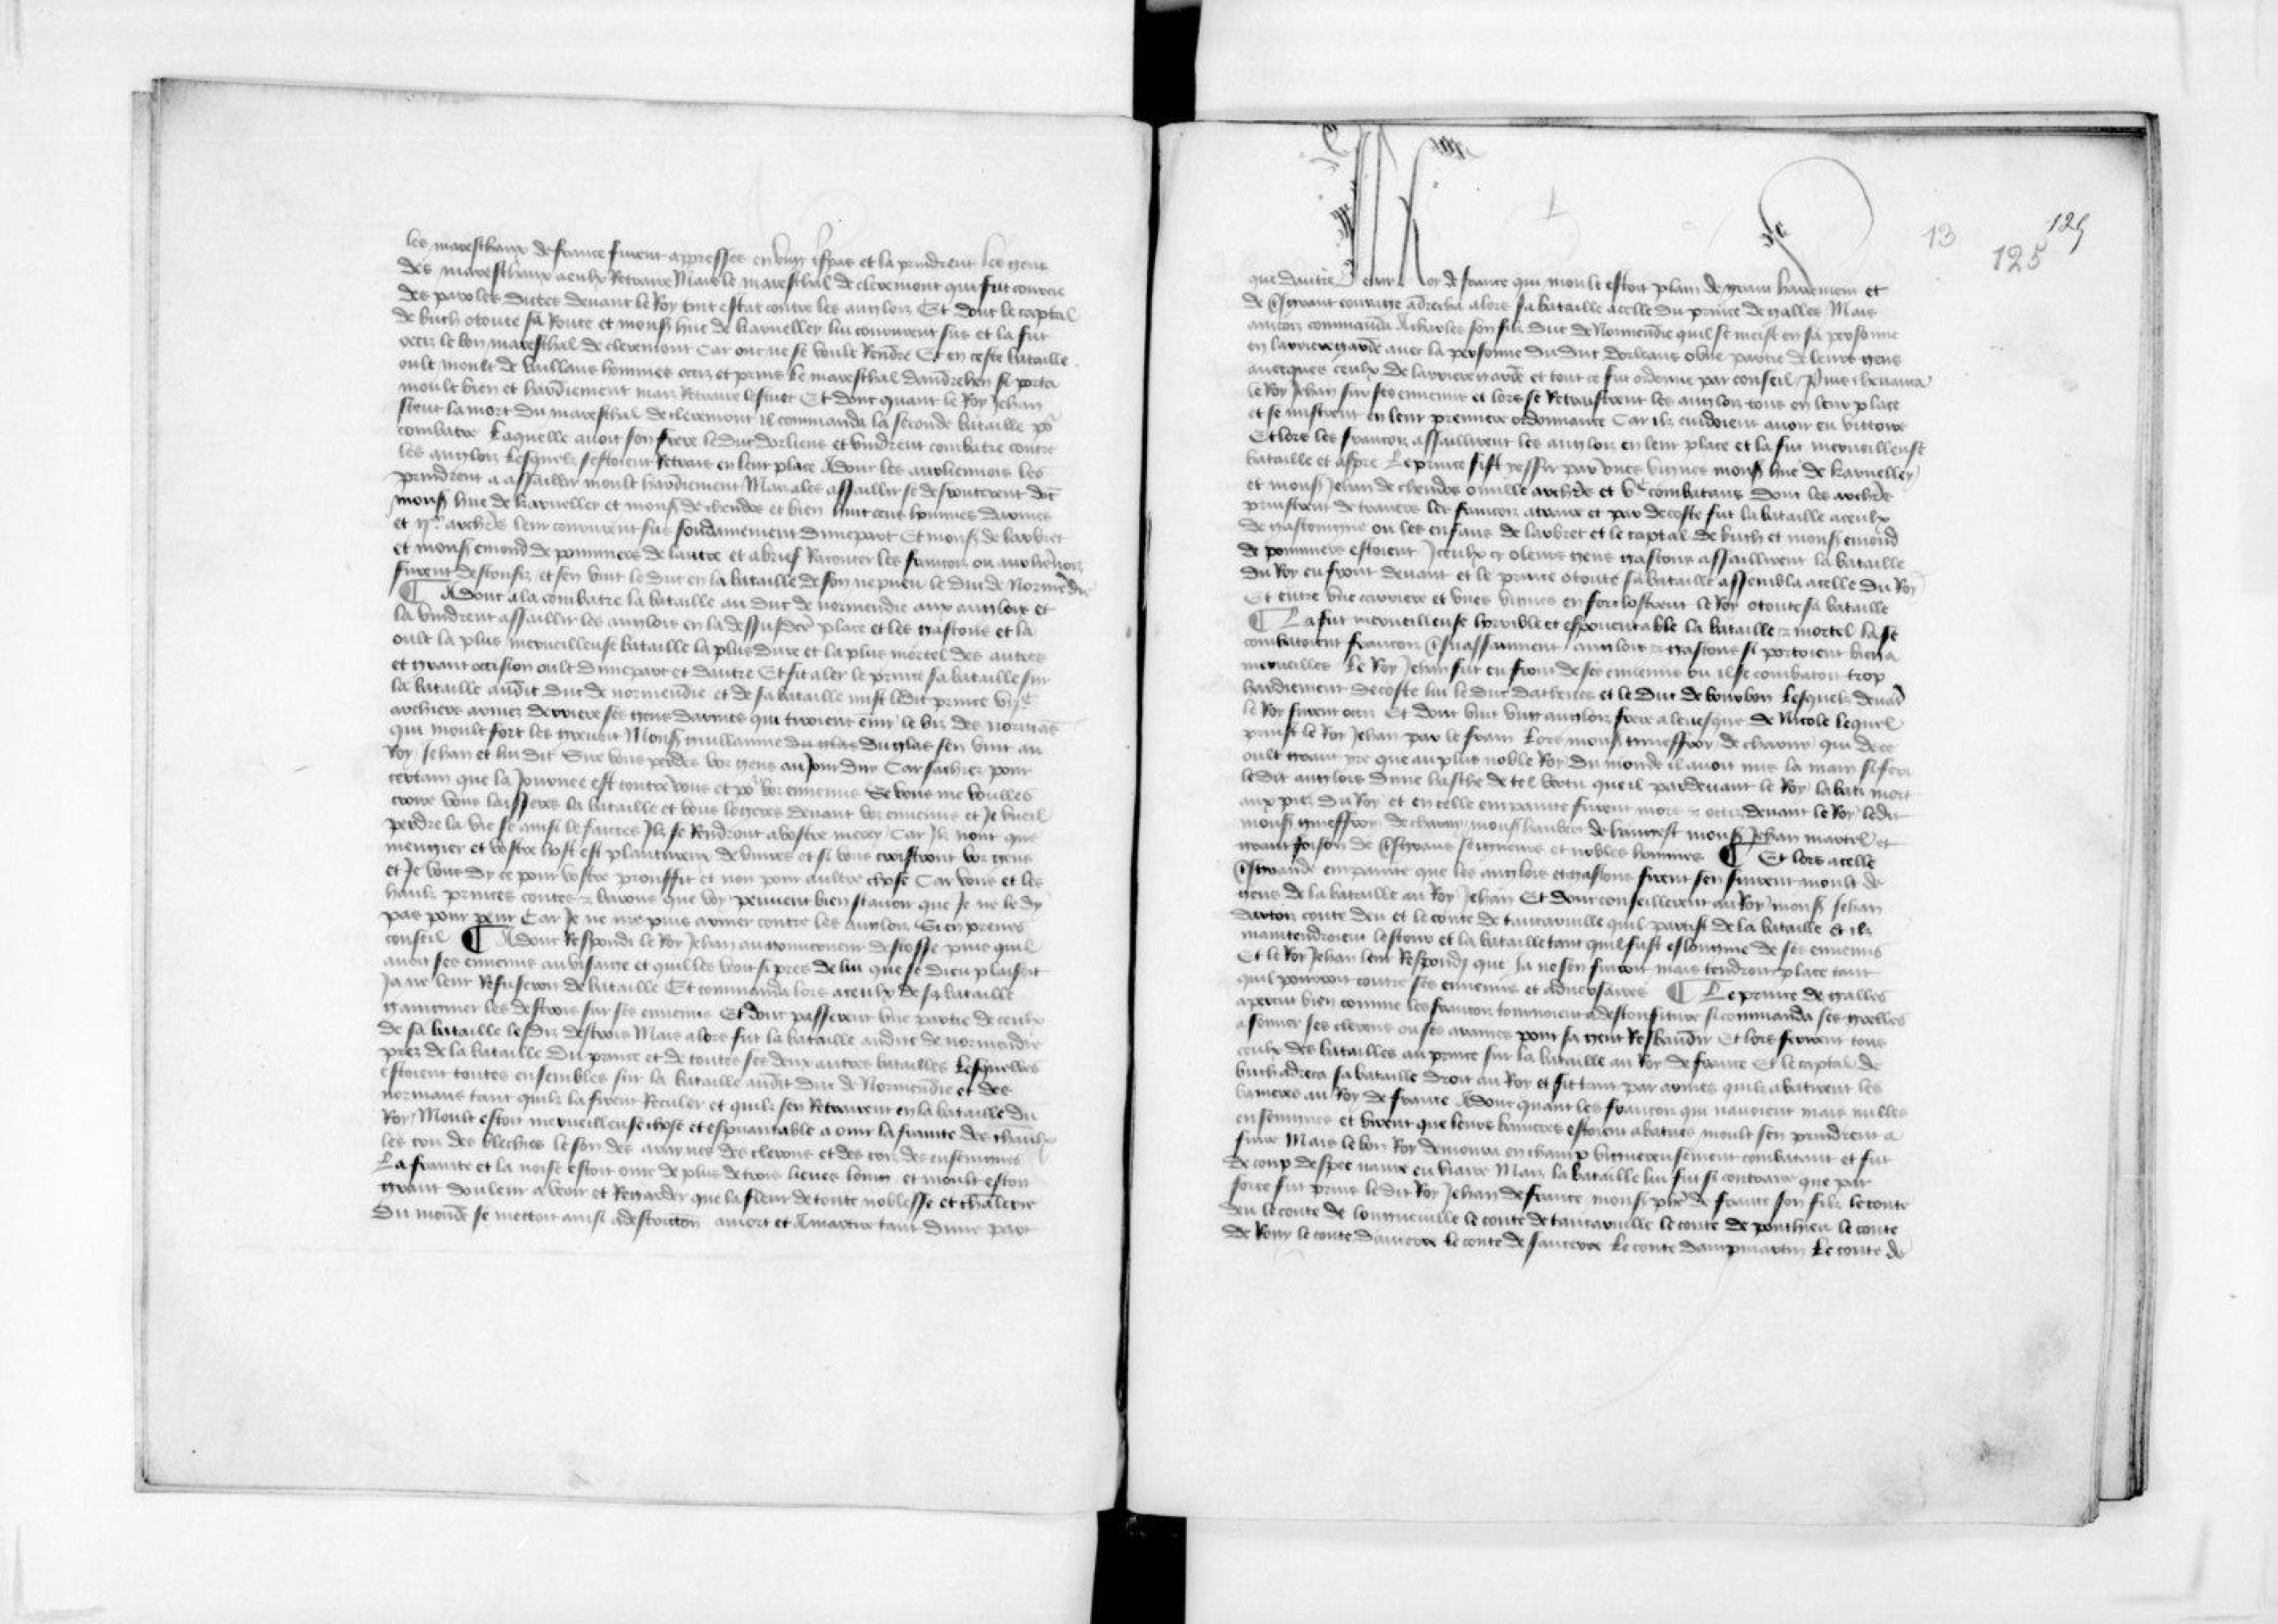 les mareschaux de france furent appressez en ung espas et la prindrent les gens
des mareschaux a eulx retraire Mais le mareschal de clermont qui fut courcie
des paroles dictes devant le Roy tint estat contre les angloiz Et dont le captal
de buch o toute sa route et monsr hue de karuelley lui coururent sus et la fut
occiz le bon mareschal de clermont Car onc ne se voult rendre Et en ceste bataille
oult moult de vaillans hommes occiz et prins Le mareschal dandrehen si porta
moult bien et hardiement maiz retraire lestuet Et dont quant le Roy Jehan
sceut la mort du mareschal de cleremont il commanda la seconde bataille po
combatre Laquelle avoit son frere le duc dorliens et vindrent combatre contre
les angloiz lesquelz sestoient retrais en leur place Adonc les orliennois les
prindrent a assaillir moult hardiement Maiz a les assaillir se desrouterent dot
monsr hue de karuelley et monsr de chendos et bien huit cens hommes darmes
et archrs leur coururent sus soudainement dunepart Et monsr de labret
et monsr emond de pommiers de lautre et a brief raconter les francoiz ou orlienoiz
furent desconfiz et sen vint le duc en la bataille de son nepueu le duc de Normedie
¶ Adont ala combatre la bataille au duc de normendie aux anglois et
la vindrent assaillir les anglois en la dessusdce place et les gascons et la
oult la plus merveilleuse bataille la plus dure et la plus mortel des autres
et grant occision oult dunepart et dautre Et fit aler le prince sa bataille sur
la bataille audit duc de normendie et de sa bataille mist ledit prince
archiers armez derriere ses gens darmes qui tiroient emy le viz des normas
qui moult fort les greuoit Monsr guillaume du glas du glas sen vint au
Roy Jehan et lui dit Sire vous perdes voz gens au jour duy Car sachiez pour
certain que la journee est contre vous et po voz ennemis Se vous me voulles
croire vous laisseres la bataille et vous logeres devant voz ennemis et Je vueil
perdre la vie se ainsi le faictes Ilz se rendront a vostre mercy Car Ilz nont que
mengier et vostre host est plantureux de vivres et si vous croistront voz gens
et Je vous dy ce pour vostre prouffit et non pour aultre chose Car vous et les
haulz princes contes & barons que voy peuuent bien scauoir que Je ne le dy
pas pour peur Car Je ne me puis armer contre les angloiz Si en prenes
conseil ¶ Adont respondi le Roy Jehan au descosse puis quil
avoit ses ennemis au visaige et quil les veoit si pres de lui que se dieu plaisoit
Ja ne leur refuseroit de bataille Et commanda lors a ceulx de sa bataille
gaingner les destrois sur ses ennemis Et dont passerent une partie de ceulx
de sa bataille lesdiz destrois Mais alors fut la bataille au duc de normendie
prez de la bataille du prince et de toutes ses deux autres batailles Lesquelles
estoient toutes ensembles sur la bataille audit duc de Normendie et des
normans tant quilz la firent reculer et quilz sen retrairent en la bataille du
Roy Moult estoit merveilleuse chose et espuantable a ouir la frainte des chaulx
les cris des bleches le son des araynes des clerons et des cors des enseignes
La frainte et la noise estoit ouie de plus de trois lieues loing et moult estoit
grant douleur a veoir et regarder que la fleur de toute noblesse et chalerie
du monde se mettoit ainsi a destruction a mort et a martire tant dune part
13
125
125
que dautre Le Roy de france qui moult estoit plain de grant hardement et
de tsgrant couraige adrecha alors sa bataille a celle du prince de galles Mais
aincoiz commanda A charles son filz duc de Normendie quil se meist en sa personne
en larrieregarde avec la personne du duc dorleans o une partie de leurs gens
avecques ceulx de larrieregarde et tout ce fut ordonne par conseil Puis chevaucha
le Roy Jehan sur ses ennemis et lors se retraistrent les angloiz tous en leur place
et se mistrent en leur premiere ordonnance Car ilz cuidoient avoir eu victoire
Et lors les francoiz assaillirent les angloiz en leur place et la fut merveilleuse
bataille et aspre Le prince fist yessir par unes vignes monsr hue de karuelley
et monsr Jehan de chendos o mille archrs et vc combatans dont les archrs
prinstrent de travers les francoiz a traire et par decoste fut la bataille a ceulx
de gascoingne ou les enfans de labret et le captal de buch et monsr emond
de pommiers estoient Iceulx cy o leurs gens gascons assaillirent la bataille
du Roy en front devant et le prince o toute sa bataille assembla a celle du Roy
Et entre une carriere et unes vignes en forclostrent le Roy o toute sa bataille
¶ La fut merveilleuse horrible et espouentable la bataille & mortel la se
combatoient francoiz anglois & gascons si portoient bien a
merveilles Le Roy Jehan fut en front de ses ennemis ou il se combatoit trop
hardiement decoste lui le duc dathenes et le duc de bourbon Lesquelz devat
le Roy furent occiz Et dont vint ung angloiz frere a levesque de Nicole lequel
prinst le Roy Jehan par le frain Lors monsr gieffroy de charny qui de ce
oult grant yre que au plus noble Roy du monde il avoit mis la main si feri
ledit anglois dune hasche de tel vertu que il pardevant le Roy labati mort
aux piez du Roy et en celle empainte furent mors & occiz devant le Roy ledit
monsr gieffroy de charny monsr haubert de hangest monsr Jehan martel et
grant foison de tsgrans seigneurs et nobles hommes ¶ Et lors a celle
tsgrande empainte que les anglois et gascons firent sen furent moult de
gens de la bataille au Roy Jehan Et dont conseillerent au Roy monsr Jehan
dartoiz conte deu et le conte de tancarville quil partist de la bataille et ilz
maintendroient lestour et la bataille tant quil fust eslongne de ses ennemis
Et le Roy Jehan leur respondy que ja ne sen fuiroit mais tendroit place tant
quil pourroit contre ses ennemis et adversaires ¶ Le prince de galles
apercut bien comme les francoiz tournoient a desconfiture si commanda ses grelles
a sonner ses clerons ou ses araines pour sa gent resbaudir Et lors ferirent tous
ceulx des batailles au prince sur la bataille au Roy de france Et le captal de
buch adreca sa bataille droit au Roy et fit tant par armes quilz abatirent les
banieres au Roy de france Adonc quant les francoiz qui navoient mais nulles
enseignes et virent que leurs banieres estoient abatues moult sen prindrent a
fuire Mais le bon Roy demoura en champ vigureusement combatant et fut
de coup despee navre en viaire Maiz la bataille lui fut si contraire que par
force fut prins ledit Roy Jehan de france monsr phe de france son filz le conte
deu le conte de longueville le conte de tancarville le conte de ponthieu le conte
de Rony le conte daucerre le conte de sancerre Le conte dampmartin Le conte de